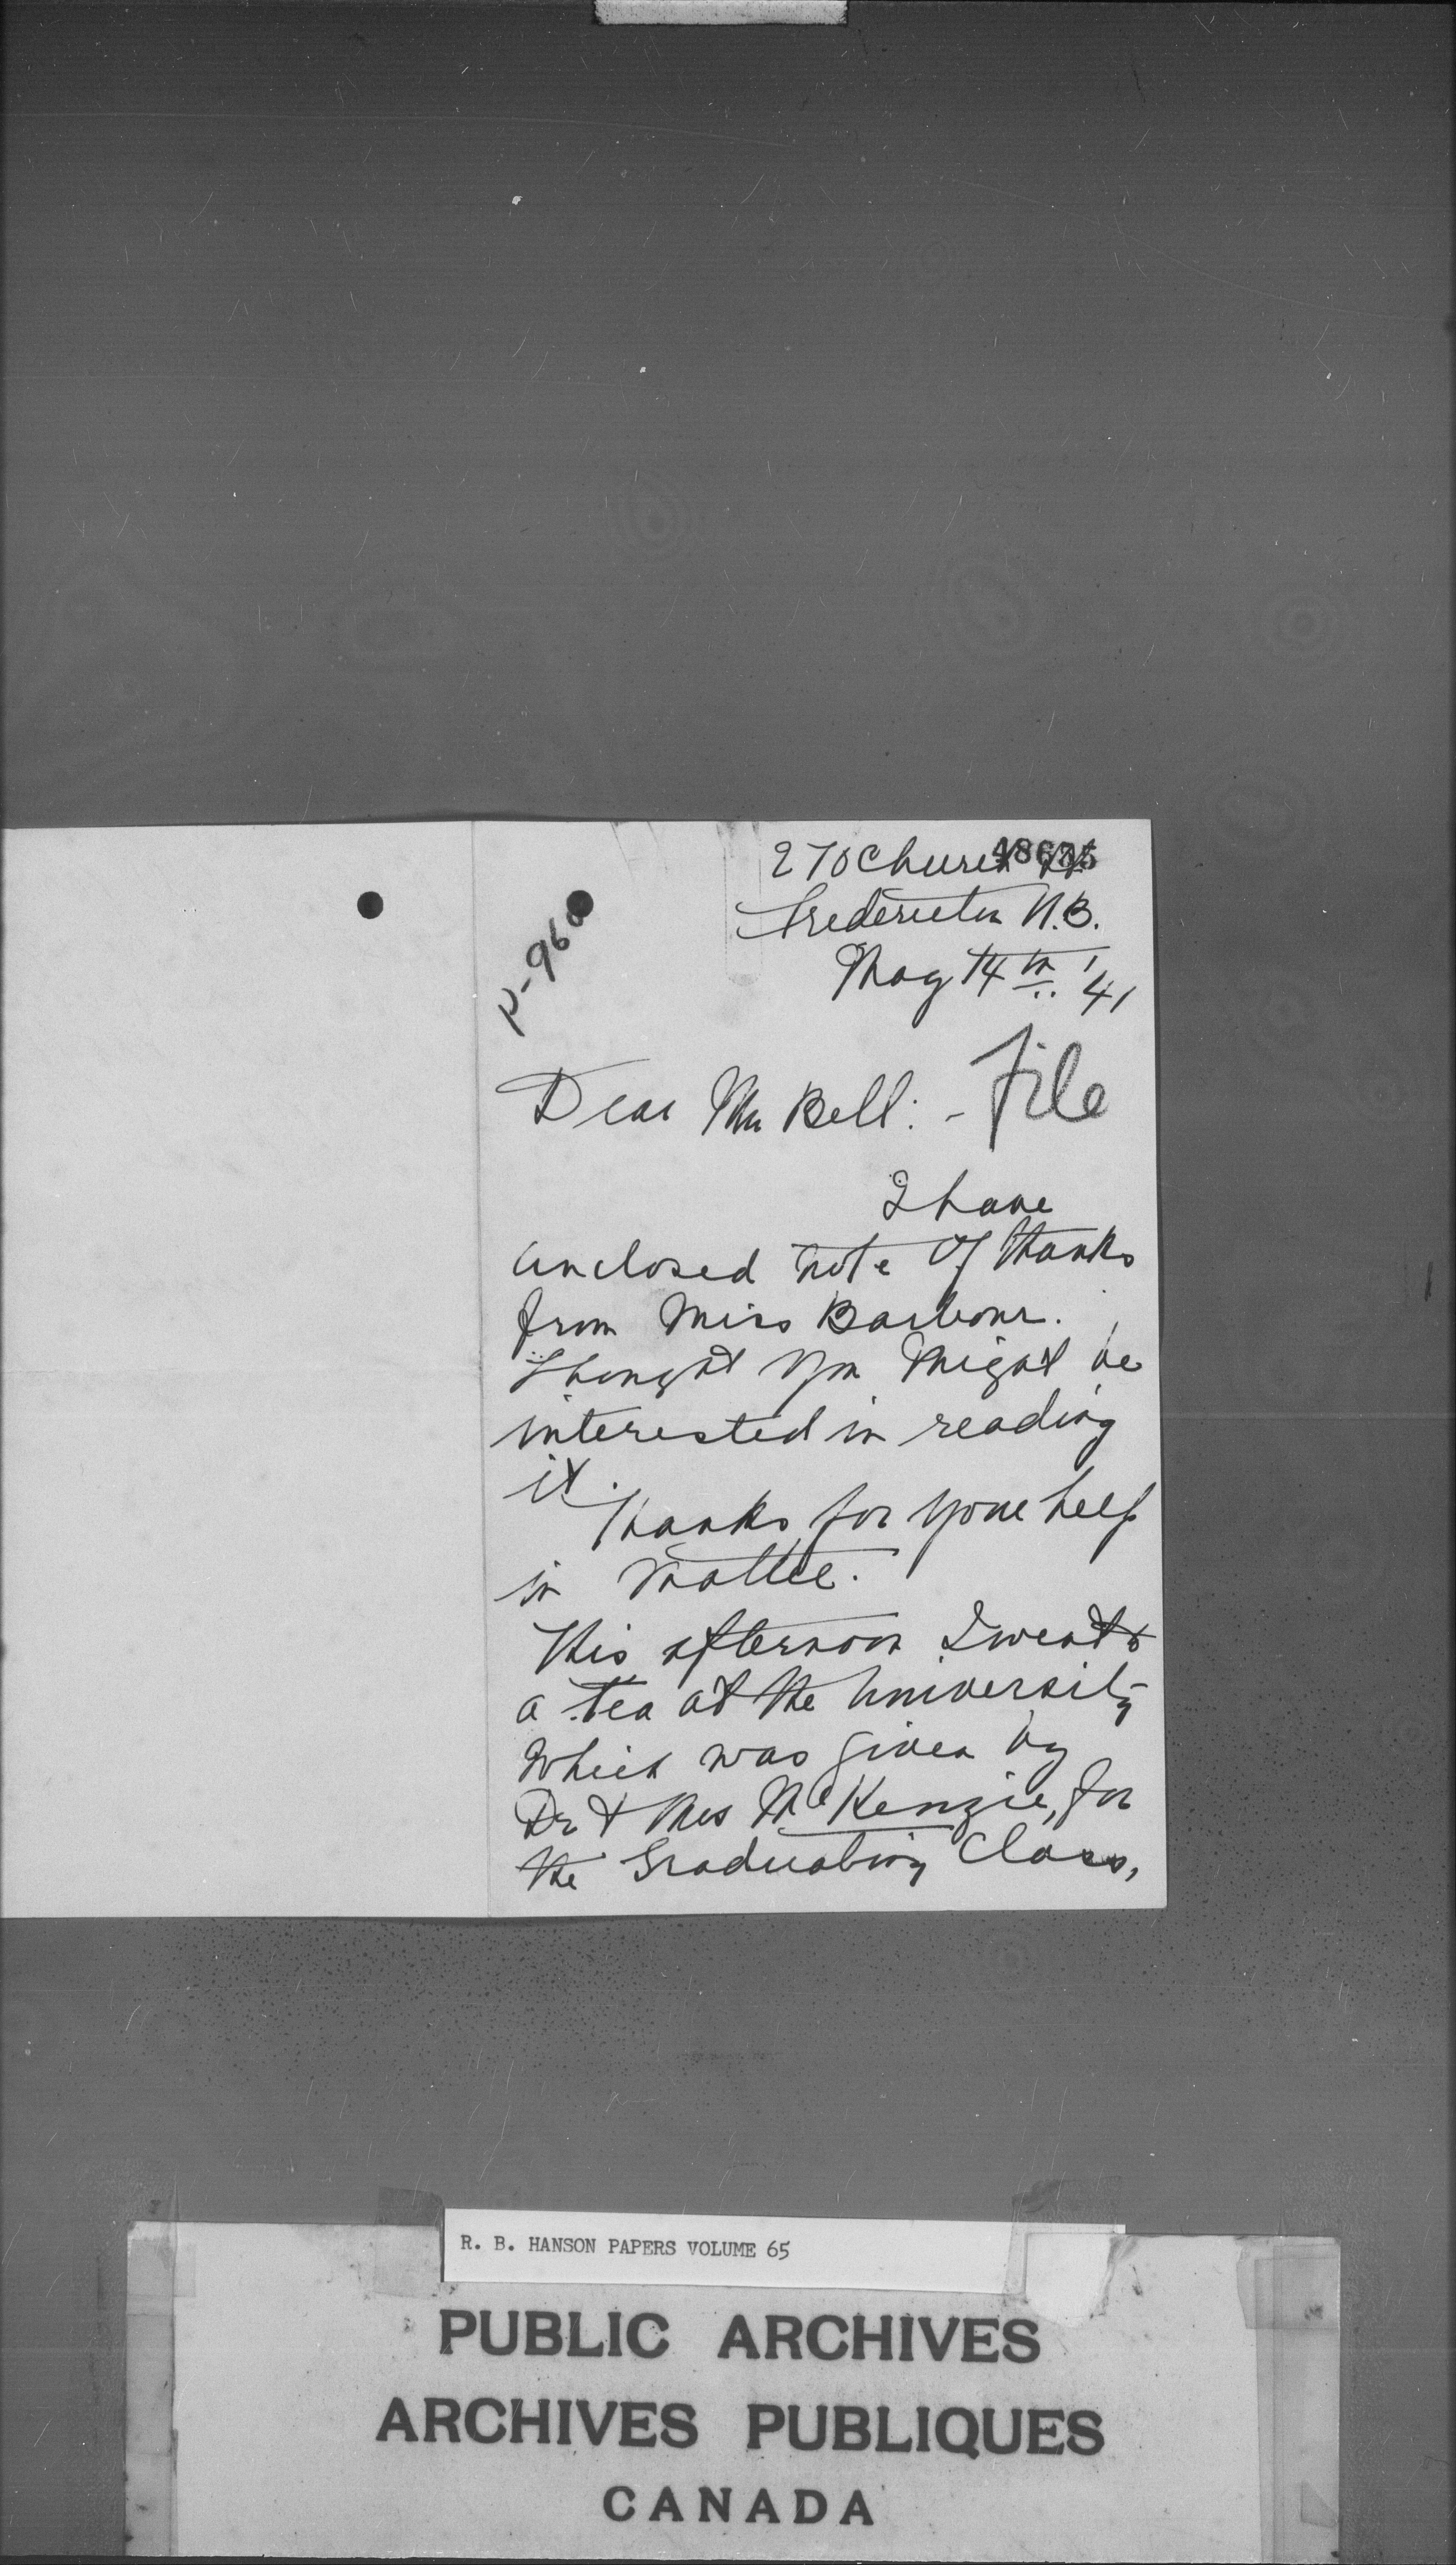 270 Church St
48635
Fredericton N.B.
May 14th '41
P-960
Dear Mr Bell: - File
I have
enclosed note of thanks
from Miss Barbour.
Thought you might be
interested in reading
it.
Thanks for your help
in matter.
This afternoon I went to
a tea at the University
which was given by
Dr & Mrs McKenzie, for
the Graduating Class,
R. B. HANSON PAPERS VOLUME 65
PUBLIC ARCHIVES
ARCHIVES PUBLIQUES
CANADA